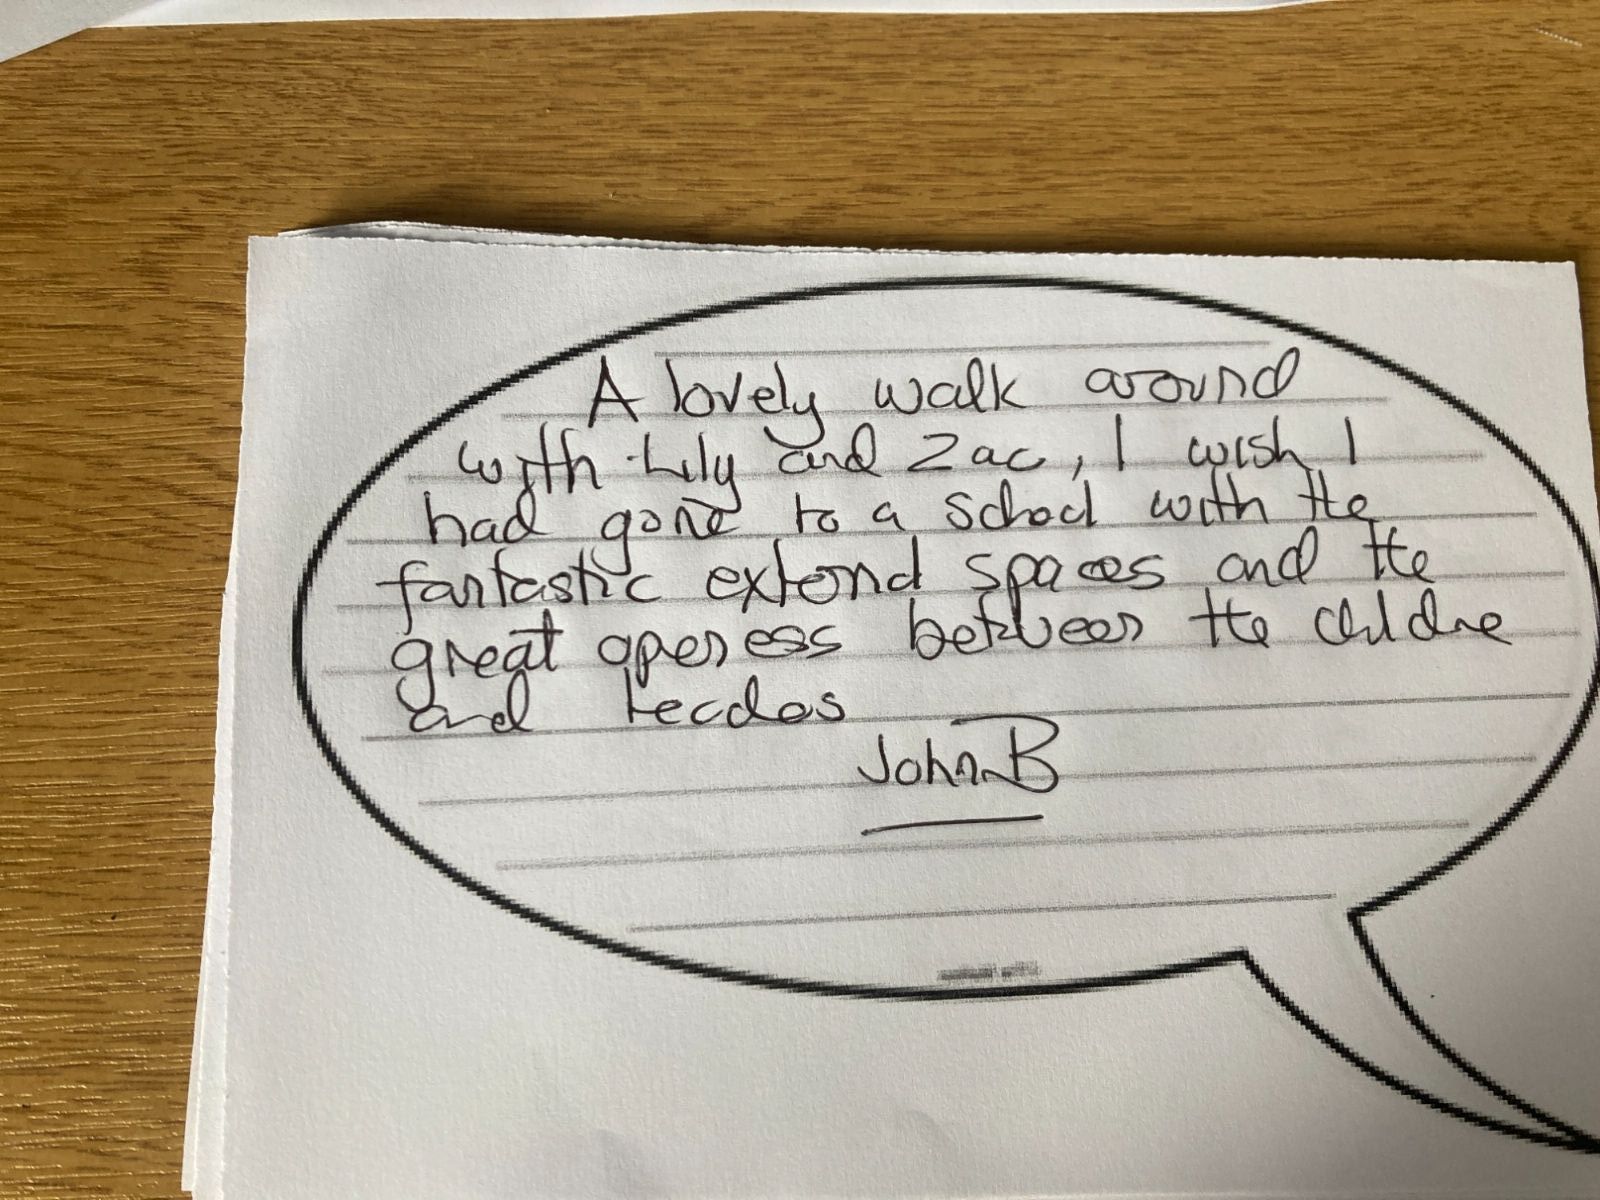 A lovely walk around
with Lily and Zac, I wish I
had gone to a school with the
fantastic extend spaces and the
great openess between the childre
and teachers
John B